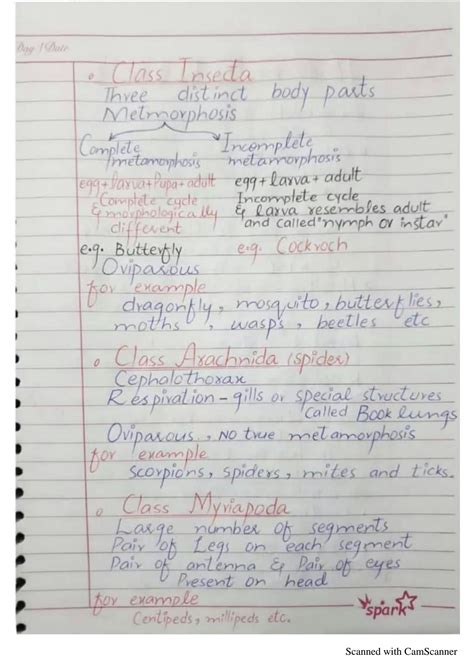 Pag / Date
Class Insecta
Three distinct body parts
Metmorphosis
Complete metamorphosis
Incomplete metamorphosis
egg + larva + Pupa + adult
egg + larva + adult
Complete cycle & morphologically different
Incomplete cycle & larva resembles adult and called "nymph or instar"
e.g. Butterfly
e.g. Cockroch
Oviparous
for example
dragonfly, mosquito, butterflies,
moths, wasps, beetles etc
Class Arachnida (spider)
Cephalothorax
Respiration - gills or special structures
called Book lungs
Oviparous, No true metamorphosis
for example
scorpions, spiders, mites and ticks.
Class Myriapoda
Large number of segments
Pair of Legs on each segment
Pair of antenna & Pair of eyes
Present on head
for example
Centipeds, millipeds etc.
spark
Scanned with CamScanner